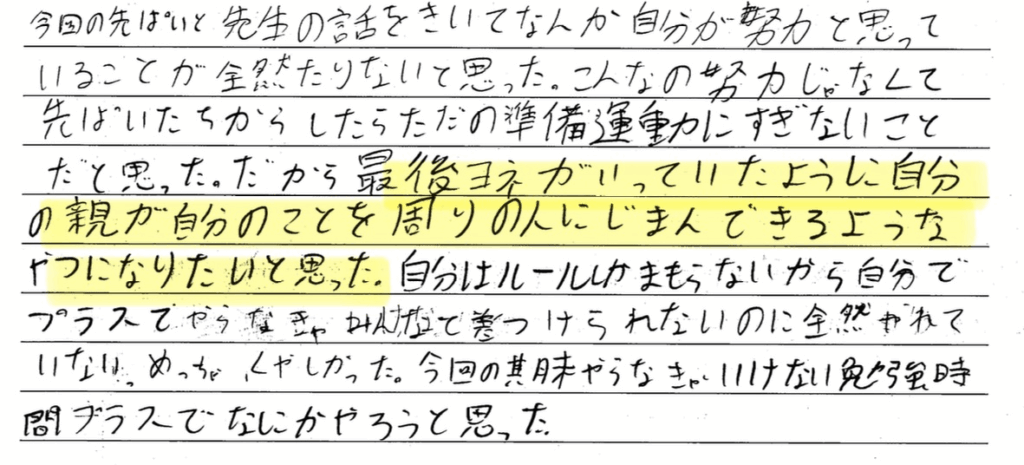 今回の先ぱいと先生の話をきいてなんか自分が努力と思って
いることが全然たりないと思った。こんなの努力じゃなくて
先ぱいたちからしたらただの準備運動にすぎないこと
だと思った。だから最後ヨネがいっていたように自分
の親が自分のことを周りの人にじまんできるような
やつになりたいと思った。自分はルールしかまもらないから自分で
プラスでやらなきゃ差つけられないのに全然やれて
いない。めっちゃくやしかった。今回の期末やらなきゃいけない勉強時
間プラスでなにかやろうと思った。